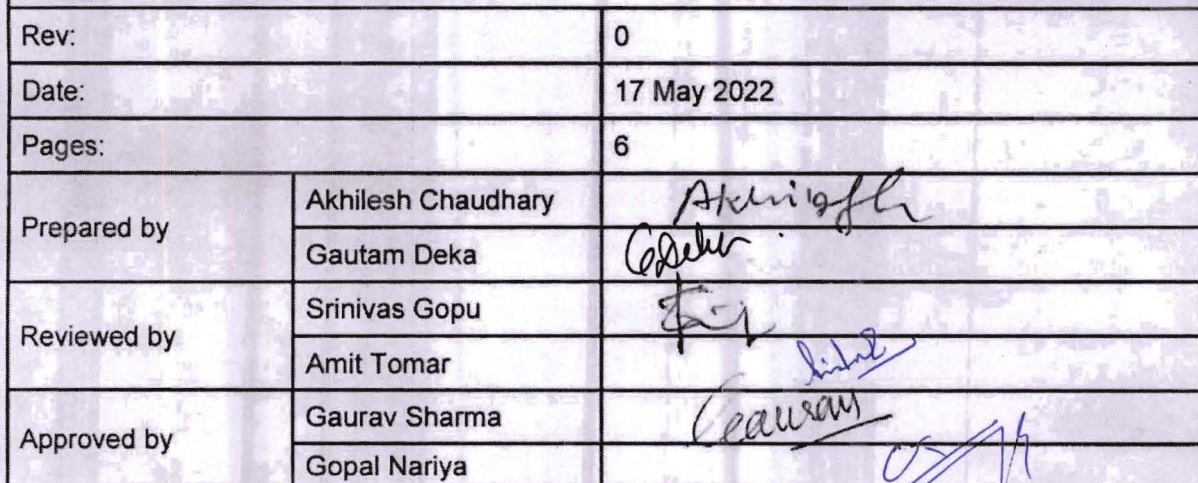 Rev: 0
Date: 17 May 2022
Pages: 6
Prepared by
Akhilesh Chaudhary Akhilesh
Gautam Deka GDeka
Reviewed by
Srinivas Gopu
Amit Tomar
Approved by
Gaurav Sharma Gaurav
Gopal Nariya